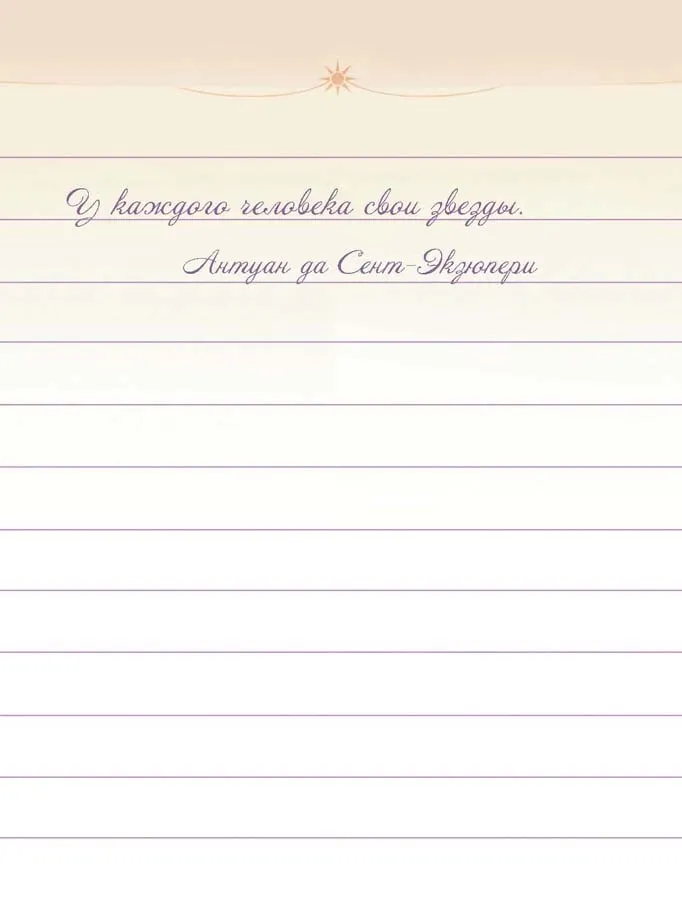 У каждого человека свои звезды.
Антуан да Сент-Экзюпери